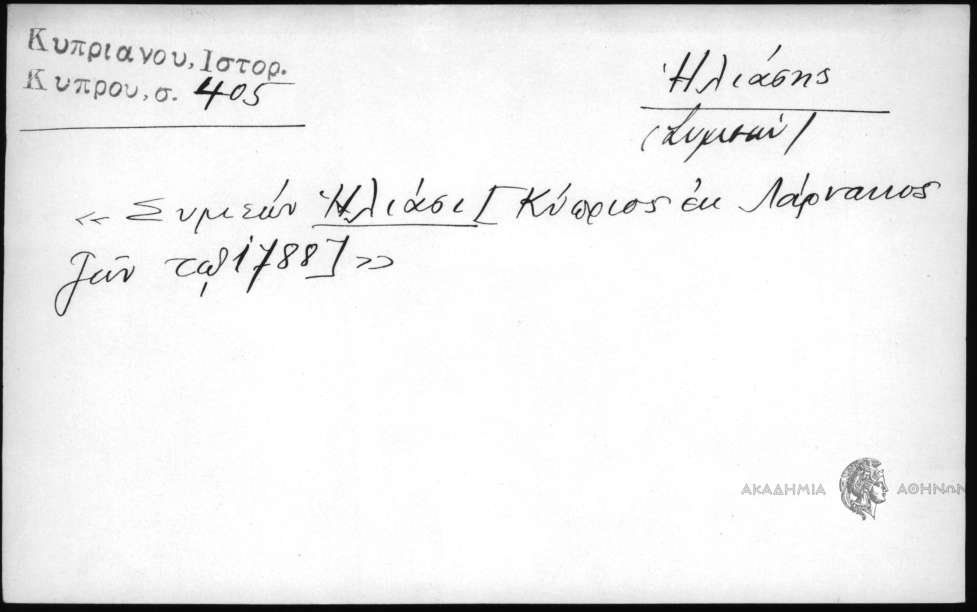 Κυπριανου, Ιστορ.
Κυπρου, σ. 405
Ἡλιάσης
(Συμεών)
« Συμεών Ἡλιάσι [Κύπριος ἐκ Λάρνακος
ζῶν τῷ 1788] »
ΑΚΑΔΗΜΙΑ ΑΘΗΝΩΝ